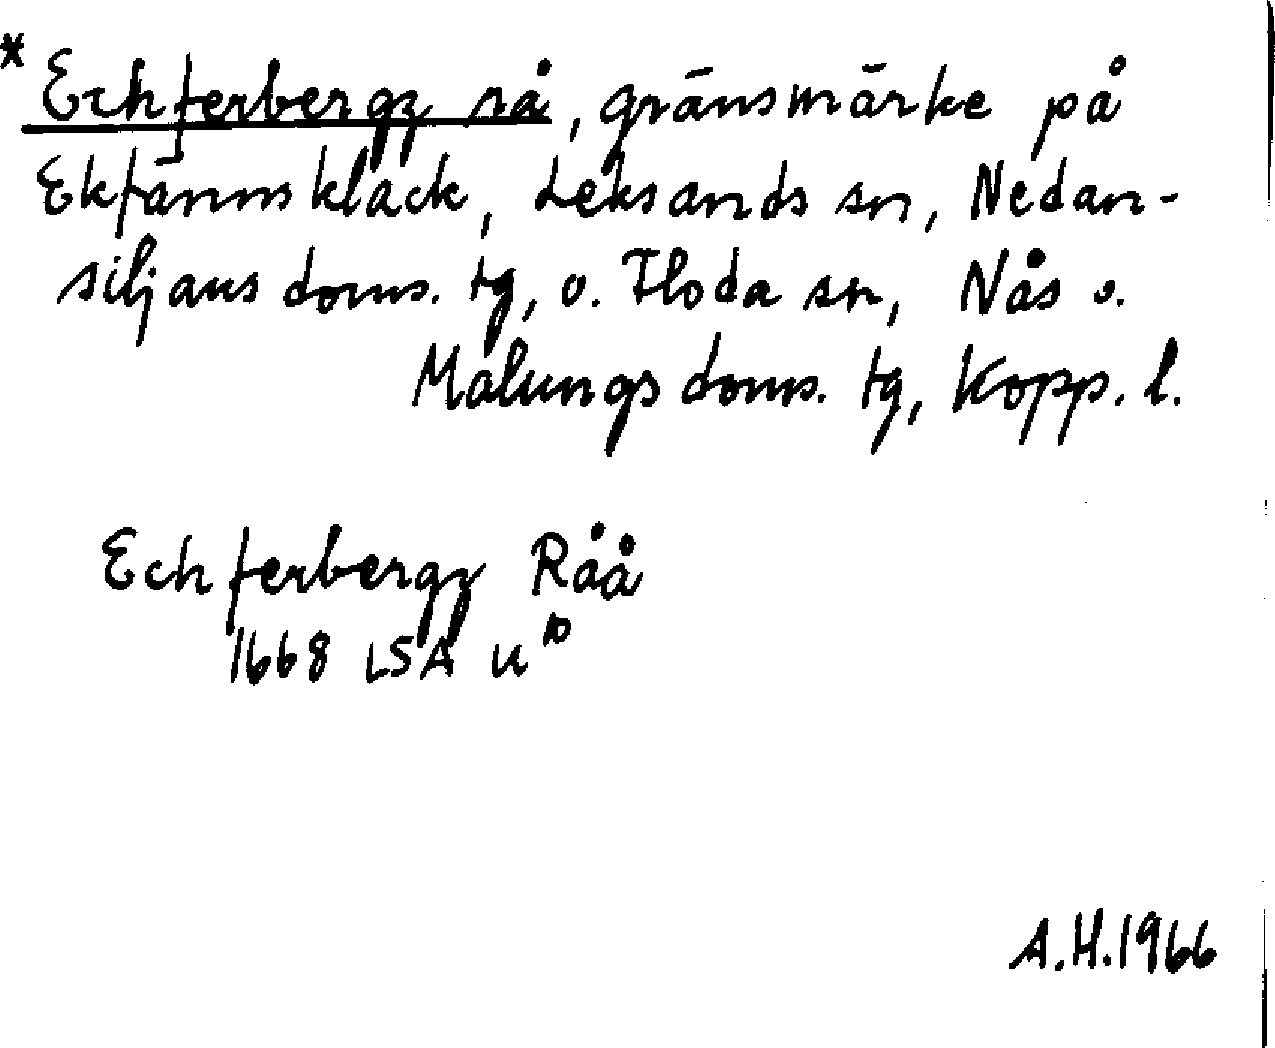 * Echferbergz rå, gränsmärke på
Ekfännsklack, Leksands sn, Nedan-
siljans doms. tg, o. Floda sn, Nås o.
Malungs doms. tg, Kopp. l.
Echferbergz Råå
1668 LSA U¹⁰
A.H.1966